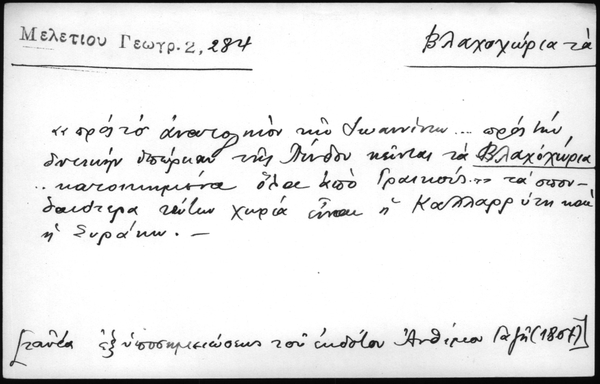 Μελετίου Γεωγρ. 2, 284
Βλαχοχώρια τὰ
« πρὸς τὸ ἀνατολικὸν τῶν Ἰωαννίνων... πρὸς τὴν
δυτικὴν ὑπώρειαν τῆς Πίνδου κεῖνται τὰ Βλαχόχώρια
.. κατοικημένα ὅλα ἀπὸ Γραικούς.» τὰ σπου-
δαιότερα τούτων χωρία εἶναι ἡ Καλλαρρύτη καὶ
ἡ Συράκω. —
[ταῦτα ἐξ ὑποσημειώσεως τοῦ ἐκδότου Ἀνθίμου Γαζῆ (1807)]